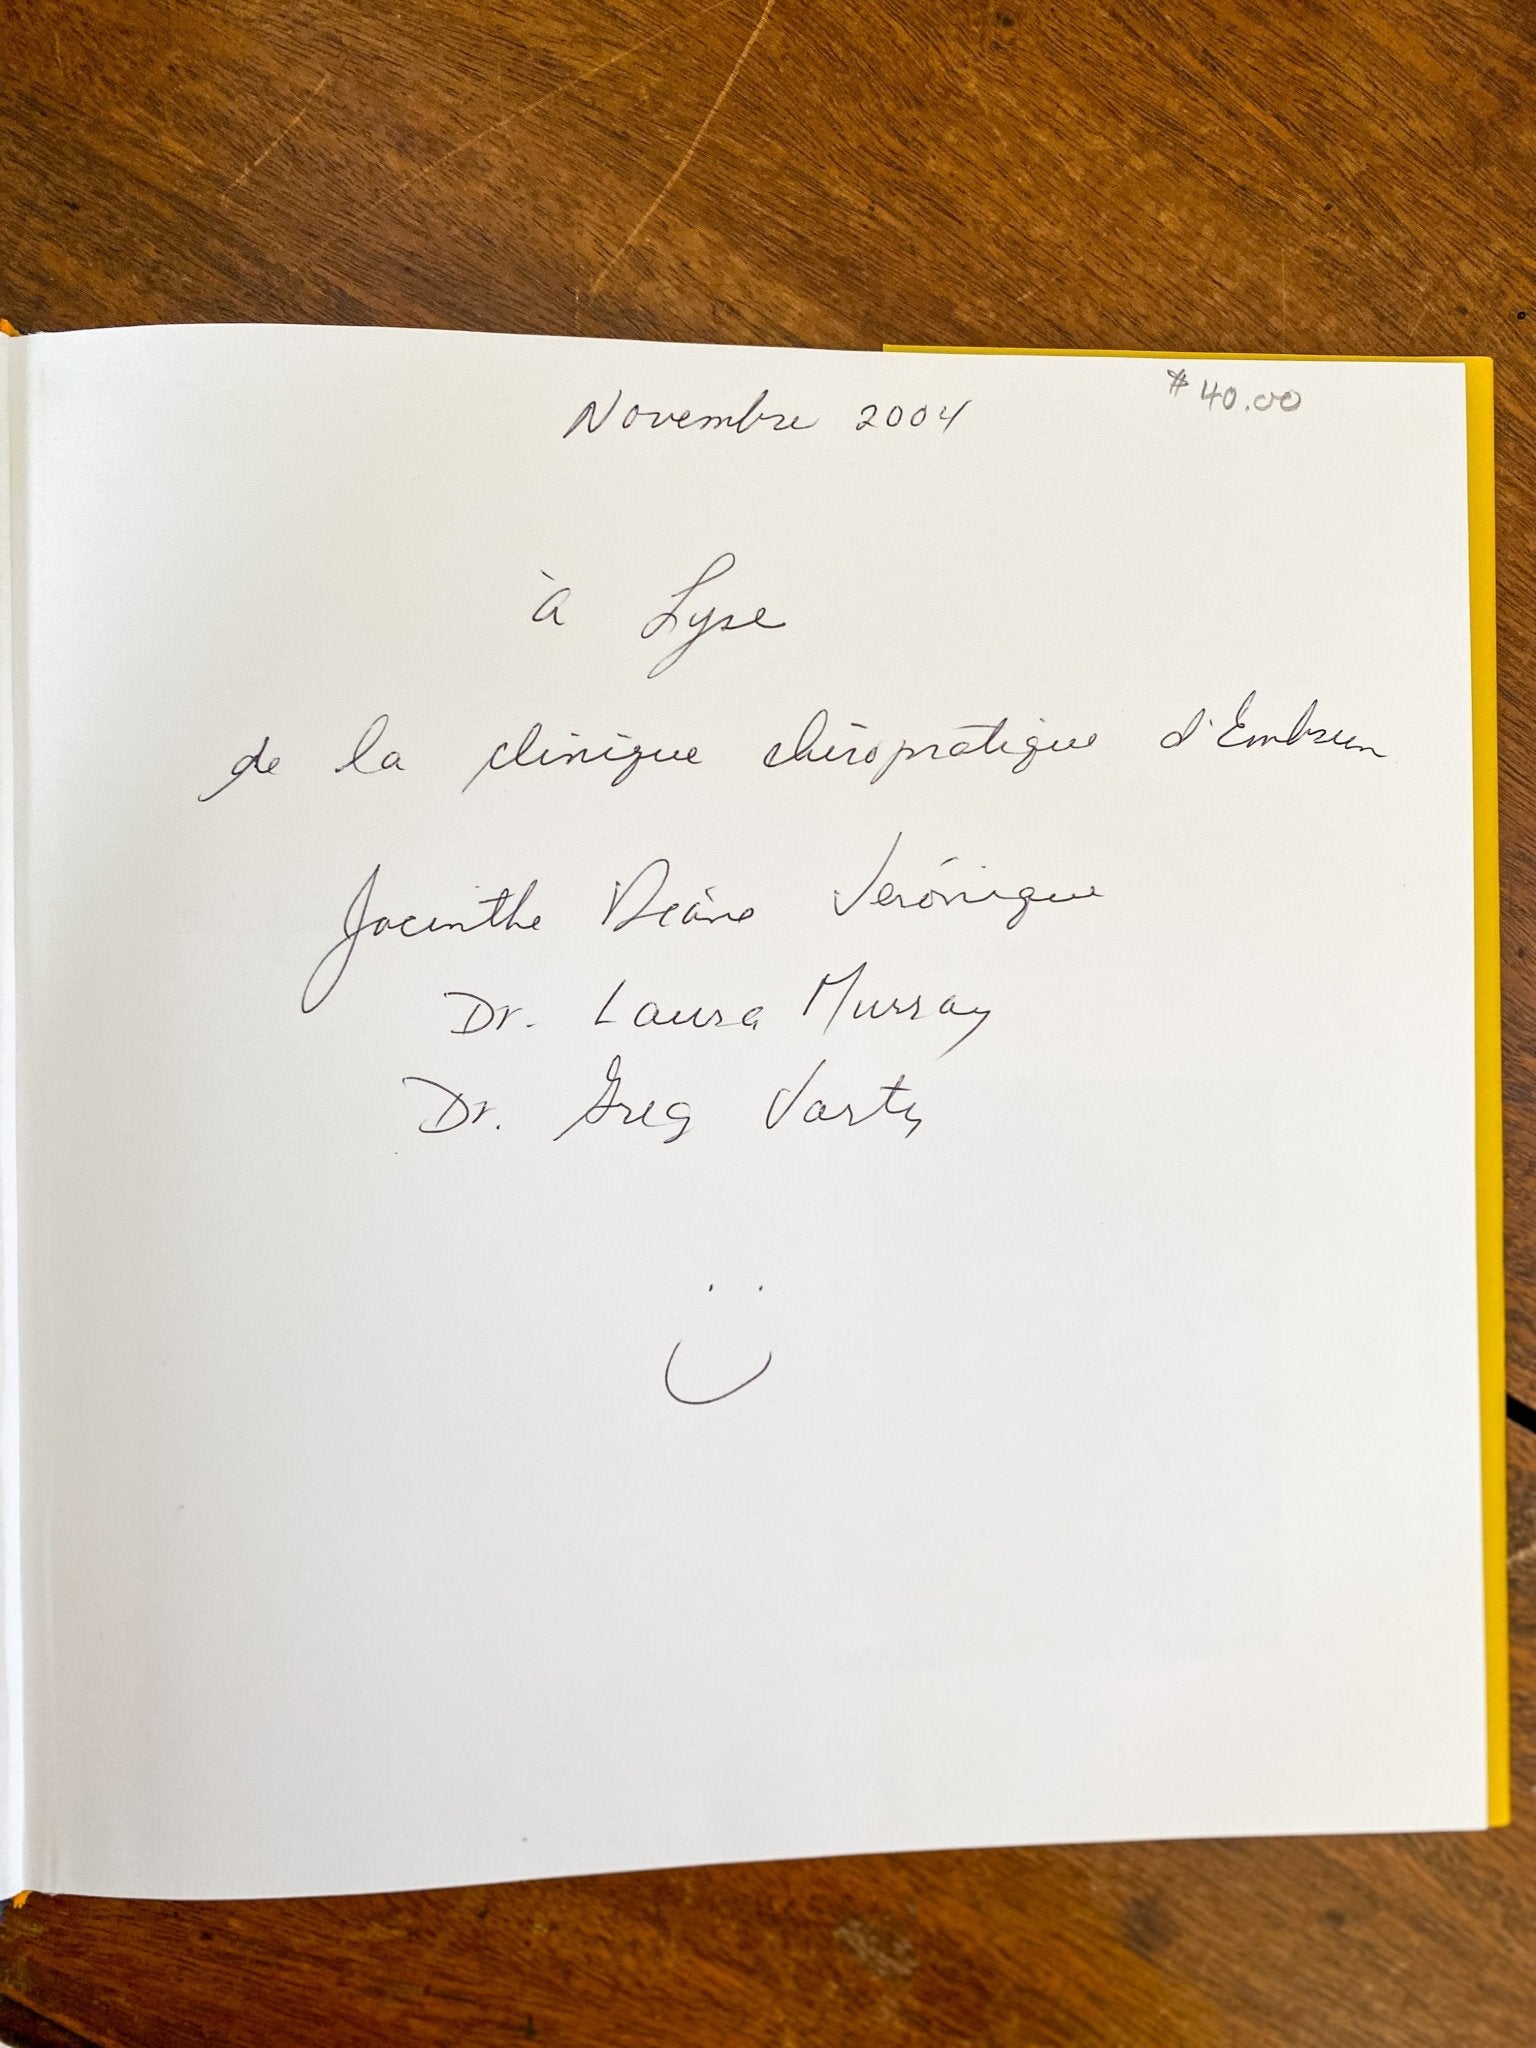 Novembre 2004
$40.00
à Lyse
de la clinique chiropratique d'Embrun
Jacinthe Diane Véronique
Dr. Laura Murray
Dr. Greg Varty